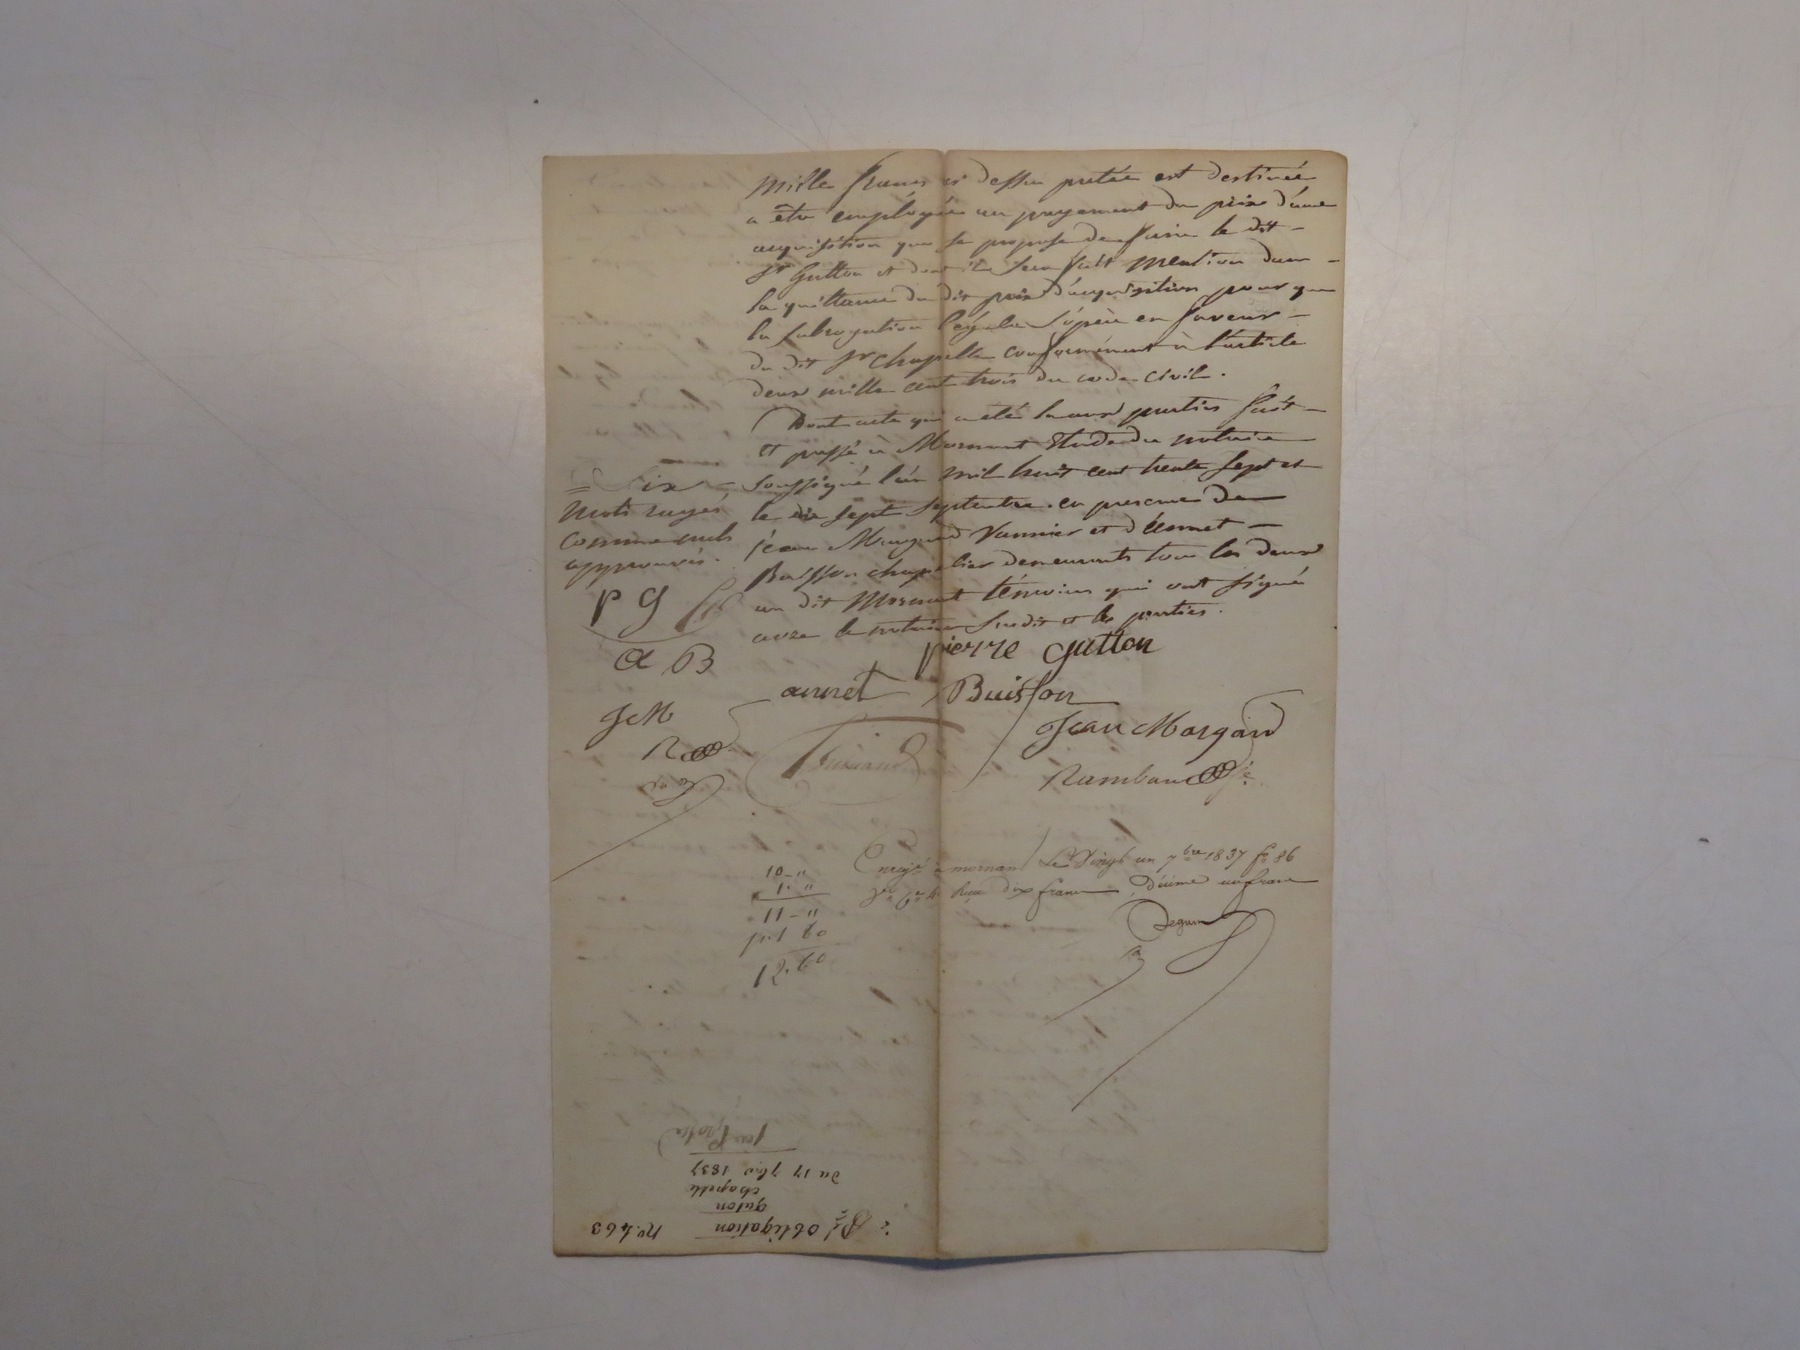 mille francs ci dessu pretée est destinée
a être employée au payement du prix d'une
acquisition que se propose de faire le dit
Sr Gutton et dont il sera fait mention dans
la quittance du dit prix d'acquisition pour que
la subrogation légale s'opère en faveur
du dit Sr Chapelle conformément à l'article
deux mille cent trois du code civil.
Dont acte qui a été lu aux parties fait
et passé à Mornant Etude du notaire
soussigné l'an mil huit cent trente sept et
le dix sept Septembre en presence de
jean Morgand Vannier et d'annet
Buisson chapelier demeurants tous les deux
au dit Mornant témoins qui ont signé
avec le notaire susdit et les parties.
= Six
mots rayés
comme nuls
approuvés.
P G
a B
JM
R
pierre Gutton
annet Buisson
Jean Morgand
Rambaud
Enregé à mornant Le Vingt un 7bre 1837 fo 86
Vo Ce 4 Reçu dix francs Décime un franc
Deguin
10 - "
1 - "
11 - "
1 60
12.60
nº 463
Obligation
guton
chapelle
du 17 7bre 1837